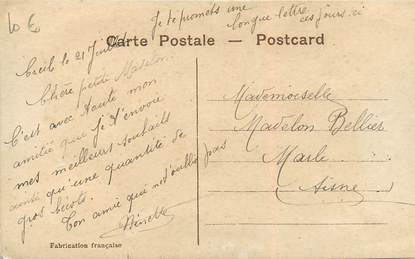 10 €
Je te promets une
longue lettre ces jours ci
Carte Postale - Postcard
Creil le 21
Chère petite Madelon
C'est avec toute mon
amitié que je t'envoie
mes meilleurs souhaits
ainsi qu'une quantité de
gros bécots.
Ton amie qui not oublie pas
Mademoiselle
Madelon Bellier
Marle
Aisne
Fabrication française